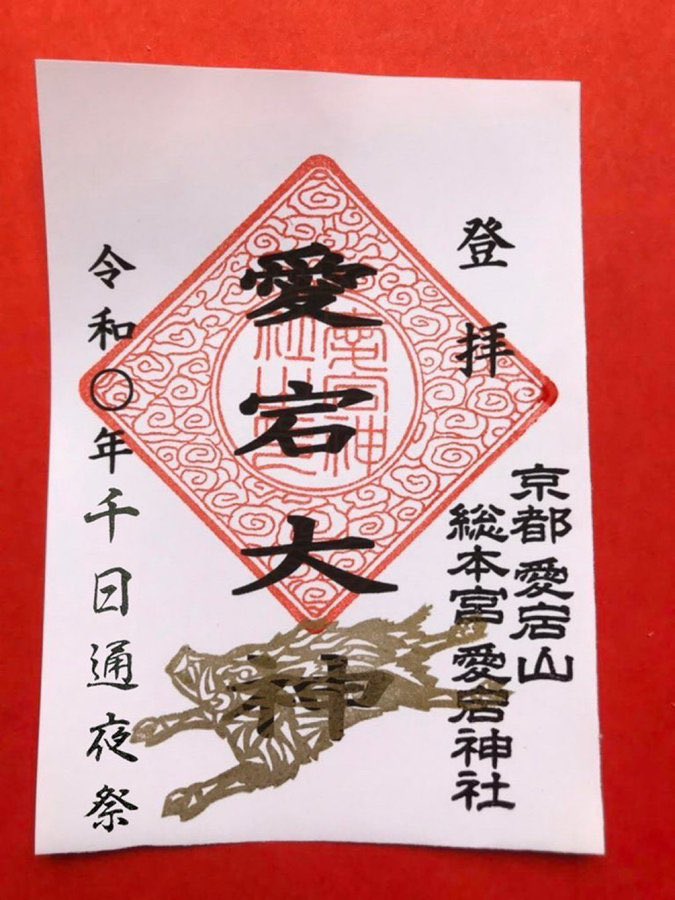 登拝
京都 愛宕山
総本宮 愛宕神社
愛宕大神
令和〇年千日通夜祭